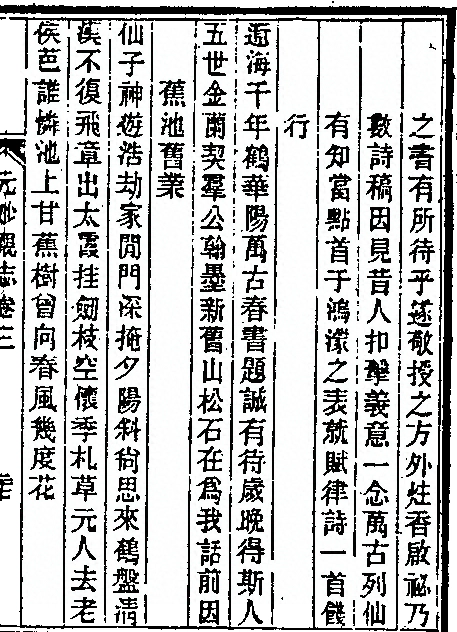 之書有所待乎遂敬授之方外炷香啟祕乃
數詩稿因見昔人扣擊義意一念萬古列仙
有知當點首于鴻濛之表就賦律詩一首餞
行
遼海千年鶴華陽萬古春書題誠有待歲晚得斯人
五世金蘭契羣公翰墨新舊山松石在爲我話前因
蕉池舊業
仙子神遊浩劫家閒門深掩夕陽斜尚思來鶴盤清
漢不復飛章出太霞挂劒枝空懷季札草元人去老
侯芭誰憐池上甘蕉樹曾向春風幾度花
元妙觀志卷三